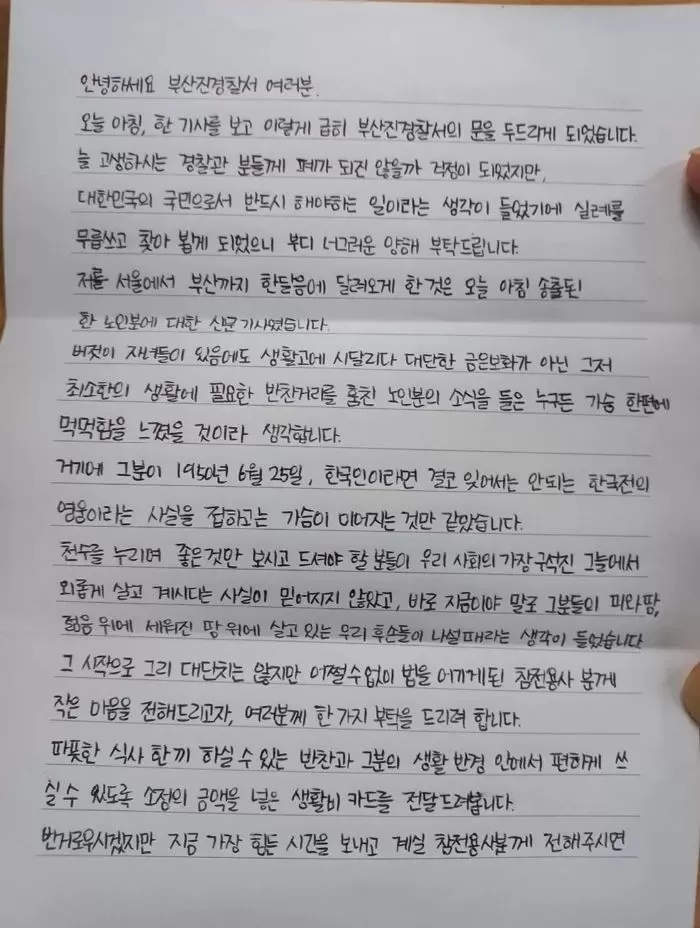 안녕하세요 부산진경찰서 여러분.
오늘 아침, 한 기사를 보고 이렇게 급히 부산진경찰서의 문을 두드리게 되었습니다.
늘 고생하시는 경찰관 분들께 폐가 되진 않을까 걱정이 되었지만,
대한민국의 국민으로서 반드시 해야하는 일이라는 생각이 들었기에 실례를
무릅쓰고 찾아 뵙게 되었으니 부디 너그러운 양해 부탁드립니다.
저를 서울에서 부산까지 한달음에 달려오게 한 것은 오늘 아침 송출된
한 노인분에 대한 신문기사였습니다.
버젓이 자녀들이 있음에도 생활고에 시달리다 대단한 금은보화가 아닌 그저
최소한의 생활에 필요한 반찬거리를 훔친 노인분의 소식을 들은 누구든 가슴 한편에
먹먹함을 느꼈을 것이라 생각합니다.
거기에 그분이 1950년 6월 25일, 한국인이라면 결코 잊어서는 안되는 한국전의
영웅이라는 사실을 접하고는 가슴이 미어지는것만 같았습니다.
천수를 누리며 좋은것만 보시고 드셔야 할 분들이 우리 사회의 가장 구석진 그늘에서
외롭게 살고 계시다는 사실이 믿어지지 않았고, 바로 지금이야 말로 그분들이 피와 땀,
젊음 위에 세워진 땅 위에 살고 있는 우리 후손들이 나설 때라는 생각이 들었습니다
그 시작으로 그리 대단치는 않지만 어쩔수없이 법을 어기게된 참전용사 분께
작은 마음을 전해드리고자, 여러분께 한 가지 부탁을 드리려 합니다.
따뜻한 식사 한끼 하실 수 있는 반찬과 그분의 생활 반경 안에서 편하게 쓰
실 수 있도록 소정의 금액을 넣은 생활비 카드를 전달드려봅니다.
번거로우시겠지만 지금 가장 힘든 시간을 보내고 계실 참전용사분께 전해주시면